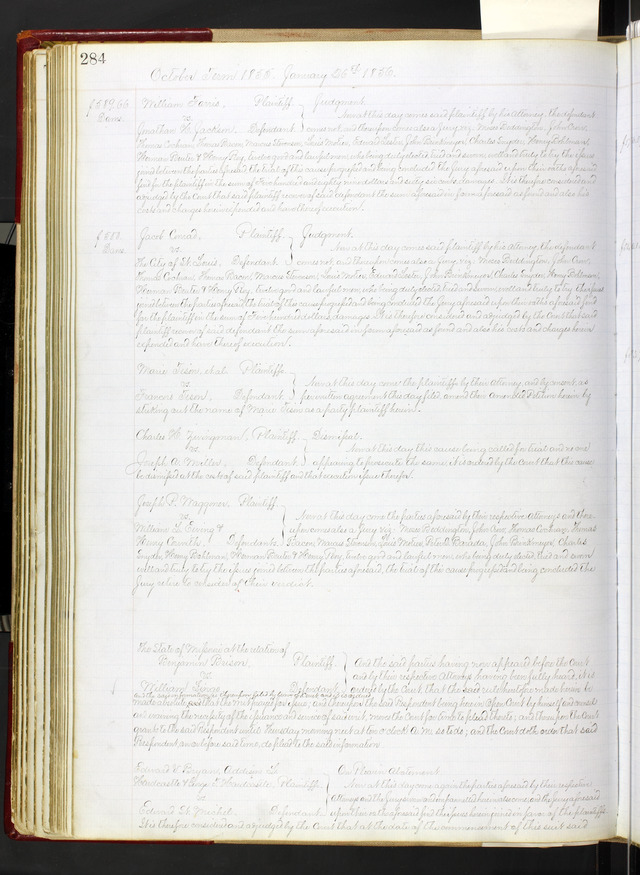 284
October Term 1855. January 26th 1856.
$589.66 William Ferris, Plaintiff Judgment.
Dams. vs. Now at this day comes said plaintiff by his attorney, the defendant
Jonathan H. Jackson, Defendant. comes not, and thereupon comes also a Jury, viz: Moses Reddington, John Carr,
Thomas Cochran, Thomas Bacon, Marcus Stevison, Louis Motier, Edward Lester, John Brinkmeyer, Charles Snyder, Henry Bohlman,
Herman Baxter & Henry Pley, twelve good and lawful men, who being duly elected, tried and sworn, well and truly to try the issue
joined between the parties aforesaid, the trial of this cause progressed and being concluded, the Jury aforesaid upon their oaths aforesaid
find for the plaintiff in the sum of Five hundred and eighty nine dollars and sixty six cents, damages. It is therefore considered and
adjudged by the Court that said plaintiff recover of said defendant the sum aforesaid in form aforesaid as found and also his
costs and charges herein expended and have thereof execution.
$500. Jacob Conrad, Plaintiff Judgment.
Dams. vs. Now at this day comes said Plaintiff by his Attorney, the defendant
The City of St. Louis, Defendant. comes not and thereupon comes also a Jury, viz: Moses Reddington, John Carr,
Thomas Cochran, Thomas Bacon, Marcus Stevison, Louis Motier, Edward Lester, John Brinkmeyer, Charles Snyder, Henry Bohlman,
Herman Baxter & Henry Pley, twelve good and lawful men, who being duly elected, tried and sworn, well and truly to try the issue
joined between the parties aforesaid, the trial of this cause progressed and being concluded the Jury aforesaid upon their oaths aforesaid find
for the plaintiff in the sum of Five hundred dollars, damages. It is therefore considered and adjudged by the Court that said
plaintiff recover of said defendant the sum aforesaid in form aforesaid as found and also his costs and charges herein
expended and have thereof execution.
Marie Tison, et al. Plaintiffs
vs. Now at this day come the plaintiffs by their Attorney, and by consent as
Francois Tison, Defendant. per written agreement this day filed, amend their Amended Petition herein by
striking out the name of Marie Tison as a party plaintiff herein.
Charles H. Plaintiff Dismissal.
vs. Now at this day this cause being called for trial and no one
Joseph A. Miller, Defendant. appearing to prosecute the same, it is ordered by the Court that this cause
be dismissed at the costs of said plaintiff and that execution issue therefor.
Joseph P. Waggoner, Plaintiff
vs. Now at this day come the parties aforesaid by their respective Attorneys and there-
William L. Ewing & upon comes also a Jury, viz: Moses Reddington, John Carr, Thomas Cochran, Thomas
Henry Defendants. Bacon, Marcus Stevison, Louis Motier, Peter John Brinkmeyer, Charles
Snyder, Henry Bohlman, Herman Baxter & Henry Pley, twelve good and lawful men, who being duly elected, tried and sworn
well and truly to try the issue joined between the parties aforesaid, the trial of this cause progressed and being concluded the
Jury retire to consider of their verdict.
The State of Missouri at the relation of
Benjamin Plaintiff And the said parties having now appeared before the Court
vs. and by their respective Attorneys having been fully heard, it is
William Defendant ordered by the Court that the said rule heretofore made herein be
made absolute and that the Writ prayed for issue; and thereupon the said Respondent being here in Open Court by himself and counsel
and waiving the necessity of the issuance and service of said writ, moves the Court for time to plead thereto; and thereupon the Court
grants to the said Respondent until Thursday morning next at ten o'clock A.M. so to do; and the Court doth order that said
Respondent on or before said time do plead to the said information.
Edward V. Bryan, Addison L. On Plea in Abatement.
Hardcastle & Hardcastle, Plaintiffs. Now at this day come again the parties aforesaid by their respective
vs. attorneys and the Jury sworn and empanelled herein also come and the Jury aforesaid
Edward St. Michel. Defendant. upon their oaths aforesaid find the issues herein joined in favor of the plaintiffs
It is therefore considered and adjudged by the Court that at the date of the commencement of this suit said